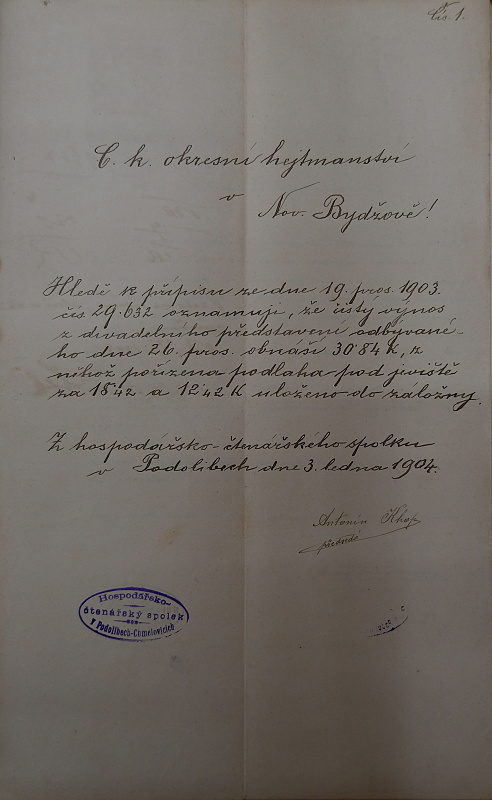 Čís. 1.
C. k. okresní hejtmanství
v
Nov. Bydžově!
Hledě k přípisu ze dne 19. pros. 1903.
čís. 29.632 oznamuji, že čistý výnos
z divadelního představení odbývané-
ho dne 26. pros. obnáší 30·84 K, z
něhož pořízena podlaha pod jeviště
za 18·42 a 12·42 K uloženo do záložny.
Z hospodářsko-čtenářského spolku
v Podolibech dne 3. ledna 1904.
Antonín
předseda
Hospodářsko-
čtenářský spolek
v Podolibech-Chmelovicích